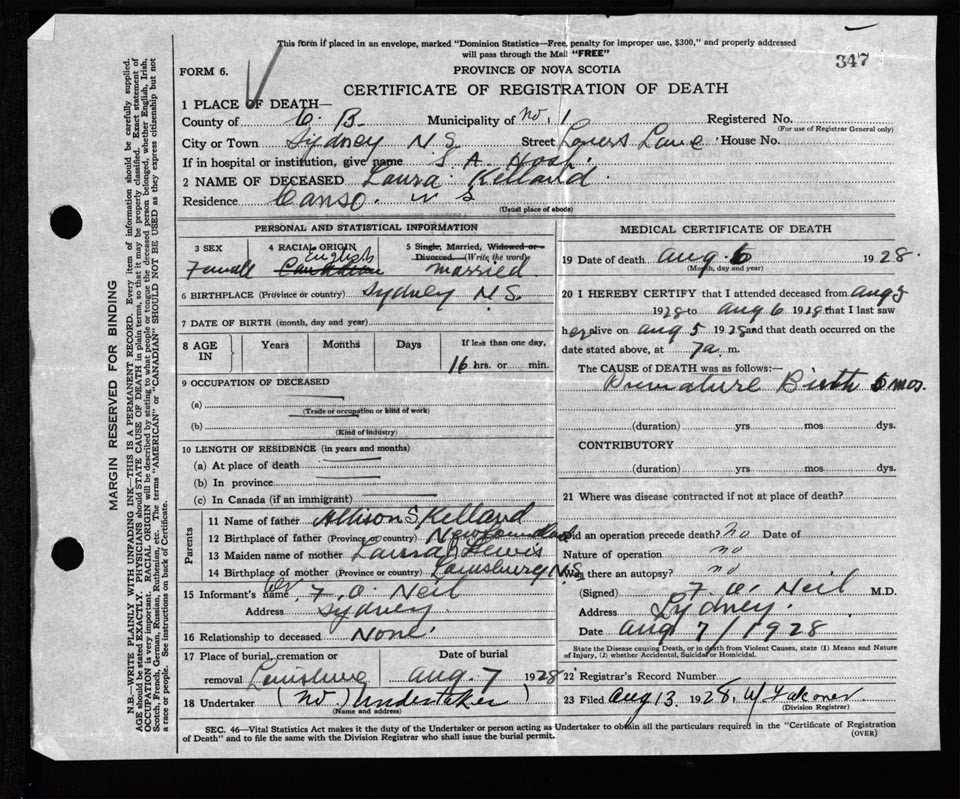 This form if placed in an envelope, marked "Dominion Statistics—Free, penalty for improper use, $300," and properly addressed
will pass through the Mail "FREE"
347
FORM 6.
PROVINCE OF NOVA SCOTIA
CERTIFICATE OF REGISTRATION OF DEATH
1 PLACE OF DEATH—
County of C. B. Municipality of No. 1 Registered No.
(For use of Registrar General only)
City or Town Sydney N S. Street Lovers Lane House No.
If in hospital or institution, give name S A Hosp.
2 NAME OF DECEASED Laura Kelland.
Residence Canso. N S
(Usual place of abode)
PERSONAL AND STATISTICAL INFORMATION
3 SEX Female
4 RACIAL ORIGIN English Canadian
5 Single, Married, Widowed or Divorced. (Write the word) Married.
6 BIRTHPLACE (Province or country) Sydney N.S.
7 DATE OF BIRTH (month, day and year)
8 AGE IN Years Months Days If less than one day, 16 hrs. or min.
9 OCCUPATION OF DECEASED
(a)
(Trade or occupation or kind of work)
(b)
(Kind of industry)
10 LENGTH OF RESIDENCE (in years and months)
(a) At place of death
(b) In province
(c) In Canada (if an immigrant)
Parents
11 Name of father Allison S. Kelland
12 Birthplace of father (Province or country) Newfoundland
13 Maiden name of mother Laura Lewis
14 Birthplace of mother (Province or country) Louisburg N.S.
15 Informant's name, F. O. Neil
Address Sydney
16 Relationship to deceased None.
17 Place of burial, cremation or removal Louisburg
Date of burial Aug. 7 1928
18 Undertaker (No) Undertaker
(Name and address)
MEDICAL CERTIFICATE OF DEATH
19 Date of death Aug. 6 1928.
(Month, day and year)
20 I HEREBY CERTIFY that I attended deceased from Aug 5
1928 to Aug 6 1928 that I last saw
her alive on Aug 5 1928 and that death occurred on the
date stated above, at 7 a. m.
The CAUSE of DEATH was as follows:—
Premature Birth 6 mos.
(duration) yrs mos dys.
CONTRIBUTORY
(duration) yrs mos dys.
21 Where was disease contracted if not at place of death?
Did an operation precede death? No Date of
Nature of operation no
Was there an autopsy? no
(Signed) F. O. Neil M.D.
Address Sydney.
Date Aug 7/1928
State the Disease causing Death, or in death from Violent Causes, state (1) Means and Nature
of Injury, (2) whether Accidental, Suicidal or Homicidal.
22 Registrar's Record Number
23 Filed Aug 13 1928, W. Falconer
(Division Registrar)
SEC. 46—Vital Statistics Act makes it the duty of the Undertaker or person acting as Undertaker to obtain all the particulars required in the "Certificate of Registration
of Death" and to file the same with the Division Registrar who shall issue the burial permit.
(OVER)
MARGIN RESERVED FOR BINDING
N.B.—WRITE PLAINLY WITH UNFADING INK—THIS IS A PERMANENT RECORD. Every item of information should be carefully supplied.
AGE should be stated EXACTLY. PHYSICIANS should STATE CAUSE OF DEATH in plain terms, so that it may be properly classified. Exact statement of
OCCUPATION is very important. RACIAL ORIGIN will be described by stating to what people or tongue the deceased person belonged, whether English, Irish,
Scotch, French, German, Russian, Ruthenian, etc. The terms "AMERICAN" or "CANADIAN" SHOULD NOT BE USED as they express citizenship but not
a race or people. See instructions on back of Certificate.